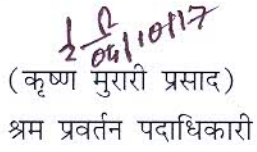 04/10/17
(कृष्ण मुरारी प्रसाद)
श्रम प्रवर्तन पदाधिकारी